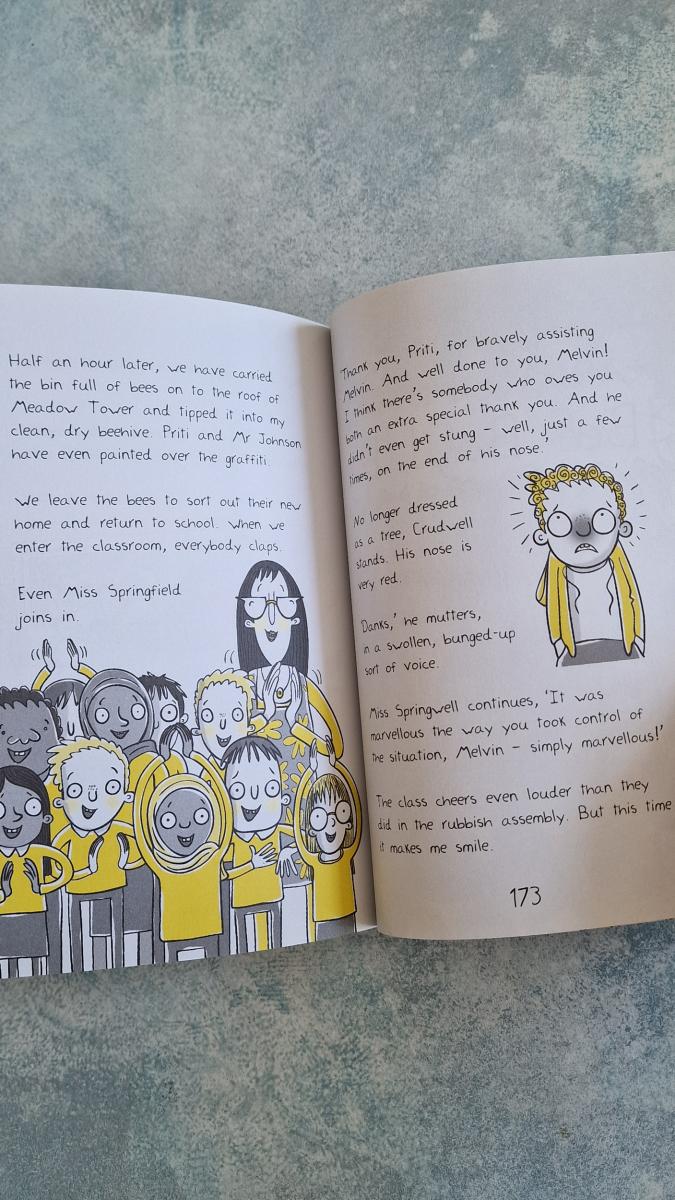 Half an hour later, we have carried
the bin full of bees on to the roof of
Meadow Tower and tipped it into my
clean, dry beehive. Priti and Mr Johnson
have even painted over the graffiti.
We leave the bees to sort out their new
home and return to school. When we
enter the classroom, everybody claps.
Even Miss Springfield
joins in.
Thank you, Priti, for bravely assisting
Melvin. And well done to you, Melvin!
I think there's somebody who owes you
both an extra special thank you. And he
didn't even get stung – well, just a few
times, on the end of his nose.'
No longer dressed
as a tree, Crudwell
stands. His nose is
very red.
Danks,' he mutters,
in a swollen, bunged-up
sort of voice.
Miss Springwell continues, 'It was
marvellous the way you took control of
the situation, Melvin – simply marvellous!'
The class cheers even louder than they
did in the rubbish assembly. But this time
it makes me smile.
173